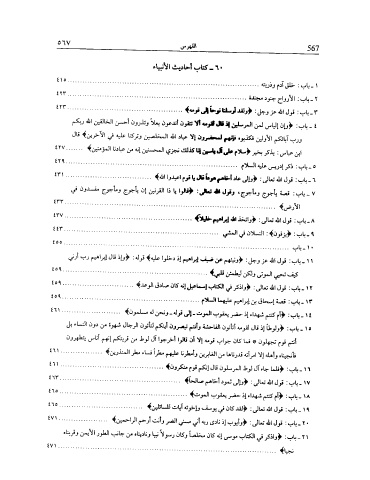 567 الفهرس ٥٦٧
٦٠ - كتاب أحاديث الأنبياء
١ - باب: خلق آدم وذريته ٤١٥
٢ - باب: الأرواح جنود مجندة ٤٢٣
٣ - باب: قول الله عز وجل: ﴿ولقد أرسلنا نوحاً إلى قومه﴾ ٤٢٣
٤ - باب: ﴿وإن إلياس لمن المرسلين إذ قال لقومه ألا تتقون أتدعون بعلاً وتذرون أحسن الخالقين الله ربكم
ورب آبائكم الأولين فكذبوه فإنهم لمحضرون إلا عباد الله المخلصين وتركنا عليه في الآخرين﴾ قال
ابن عباس: يذكر بخير ﴿سلام على آل ياسين إنا كذلك نجزي المحسنين إنه من عبادنا المؤمنين﴾ ٤٢٧
٥ - باب: ذكر إدريس عليه السلام ٤٢٩
٦ - باب: قول الله تعالى: ﴿وإلى عاد أخاهم هوداً قال يا قوم اعبدوا الله﴾ ٤٣١
٧ - باب: قصة يأجوج ومأجوج، وقول الله تعالى: ﴿قالوا يا ذا القرنين إن يأجوج ومأجوج مفسدون في
الأرض﴾ ٤٣٣
٨ - باب: قول الله تعالى: ﴿واتخذ الله إبراهيم خليلاً﴾ ٤٣٧
٩ - باب: ﴿يزفون﴾: النسلان في المشي ٤٤٣
١٠ - باب ٤٥٥
١١ - باب: قول الله عز وجل: ﴿ونبئهم عن ضيف إبراهيم إذ دخلوا عليه﴾ قوله: ﴿وإذ قال إبراهيم رب أرني
كيف تحيي الموتى ولكن ليطمئن قلبي﴾ ٤٥٩
١٢ - باب: قول الله تعالى: ﴿واذكر في الكتاب إسماعيل إنه كان صادق الوعد﴾ ٤٥٩
١٣ - باب: قصة إسحاق بن إبراهيم عليهما السلام ٤٥٩
١٤ - باب: ﴿أم كنتم شهداء إذ حضر يعقوب الموت - إلى قوله - ونحن له مسلمون﴾ ٤٦١
١٥ - باب: ﴿ولوطاً إذ قال لقومه أتأتون الفاحشة وأنتم تبصرون أئنكم لتأتون الرجال شهوة من دون النساء بل
أنتم قوم تجهلون * فما كان جواب قومه إلا أن قالوا أخرجوا آل لوط من قريتكم إنهم أناس يتطهرون
فأنجيناه وأهله إلا امرأته قدرناها من الغابرين وأمطرنا عليهم مطراً فساء مطر المنذرين﴾ ٤٦١
١٦ - باب: ﴿فلما جاء آل لوط المرسلون قال إنكم قوم منكرون﴾ ٤٦١
١٧ - باب: قول الله تعالى: ﴿وإلى ثمود أخاهم صالحاً﴾ ٤٦٣
١٨ - باب: ﴿أم كنتم شهداء إذ حضر يعقوب الموت﴾ ٤٦٥
١٩ - باب: قول الله تعالى: ﴿لقد كان في يوسف وإخوته آيات للسائلين﴾ ٤٦٥
٢٠ - باب: قول الله تعالى: ﴿وأيوب إذ نادى ربه أني مسني الضر وأنت أرحم الراحمين﴾ ٤٧١
٢١ - باب: ﴿واذكر في الكتاب موسى إنه كان مخلصاً وكان رسولاً نبياً وناديناه من جانب الطور الأيمن وقربناه
نجياً﴾ ٤٧١